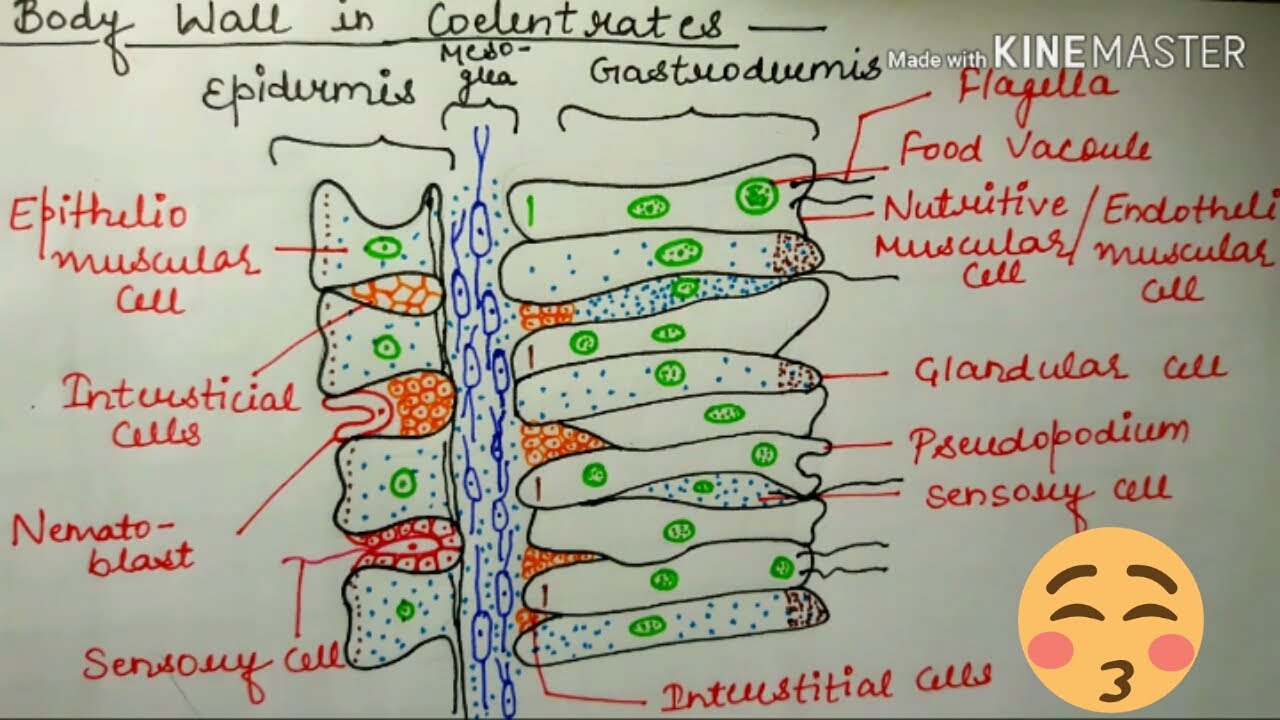 Body Wall in Coelentrates
Made with KINEMASTER
Epidermis
Meso-
glea
Gastrodermis
Flagella
Food Vacoule
Nutritive / Endotheli
Muscular / muscular
Cell
cell
Epithelio
muscular
Cell
Intersticial
Cells
Glandular cell
Pseudopodium
Sensory cell
Nemato-
blast
Sensory cell
Interstitial cells